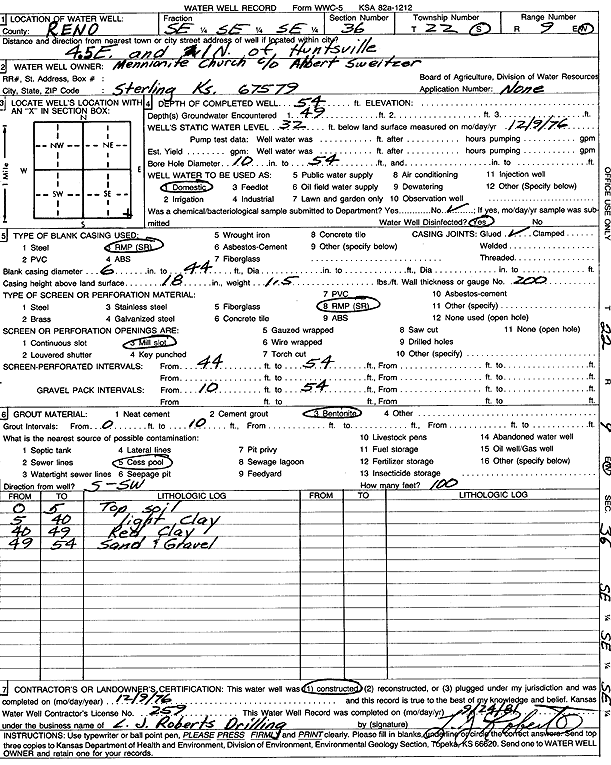 WATER WELL RECORD Form WWC-5 KSA 82a-1212
1 LOCATION OF WATER WELL: Fraction Section Number Township Number Range Number
County: RENO SE ¼ SE ¼ SE ¼ 36 T 22 S R 9 E/W
Distance and direction from nearest town or city street address of well if located within city?
4.5E. and 1N. of Huntsville
2 WATER WELL OWNER: Mennianite Church c/o Albert Sweitzer
RR#, St. Address, Box # : Board of Agriculture, Division of Water Resources
City, State, ZIP Code : Sterling Ks. 67579 Application Number: None
3 LOCATE WELL'S LOCATION WITH AN "X" IN SECTION BOX:
N
NW NE
W E
SW SE
S
1 Mile
4 DEPTH OF COMPLETED WELL 54 ft. ELEVATION:
Depth(s) Groundwater Encountered 1. 49 ft. 2. ft. 3. ft.
WELL'S STATIC WATER LEVEL 32 ft. below land surface measured on mo/day/yr 12/9/76
Pump test data: Well water was ft. after hours pumping gpm
Est. Yield gpm: Well water was ft. after hours pumping gpm
Bore Hole Diameter 10 in. to 54 ft., and in. to ft.
WELL WATER TO BE USED AS: 5 Public water supply 8 Air conditioning 11 Injection well
1 Domestic 3 Feedlot 6 Oil field water supply 9 Dewatering 12 Other (Specify below)
2 Irrigation 4 Industrial 7 Lawn and garden only 10 Observation well
Was a chemical/bacteriological sample submitted to Department? Yes No ✓; If yes, mo/day/yr sample was submitted Water Well Disinfected? Yes No
5 TYPE OF BLANK CASING USED: 5 Wrought iron 8 Concrete tile CASING JOINTS: Glued ✓ Clamped
1 Steel 3 RMP (SR) 6 Asbestos-Cement 9 Other (specify below) Welded
2 PVC 4 ABS 7 Fiberglass Threaded
Blank casing diameter 6 in. to 44 ft., Dia in. to ft., Dia in. to ft.
Casing height above land surface 18 in., weight 11.5 lbs./ft. Wall thickness or gauge No. 200
TYPE OF SCREEN OR PERFORATION MATERIAL: 7 PVC 10 Asbestos-cement
1 Steel 3 Stainless steel 5 Fiberglass 8 RMP (SR) 11 Other (specify)
2 Brass 4 Galvanized steel 6 Concrete tile 9 ABS 12 None used (open hole)
SCREEN OR PERFORATION OPENINGS ARE: 5 Gauzed wrapped 8 Saw cut 11 None (open hole)
1 Continuous slot 3 Mill slot 6 Wire wrapped 9 Drilled holes
2 Louvered shutter 4 Key punched 7 Torch cut 10 Other (specify)
SCREEN-PERFORATED INTERVALS: From 44 ft. to 54 ft., From ft. to ft.
From ft. to ft., From ft. to ft.
GRAVEL PACK INTERVALS: From 10 ft. to 54 ft., From ft. to ft.
From ft. to ft., From ft. to ft.
6 GROUT MATERIAL: 1 Neat cement 2 Cement grout 3 Bentonite 4 Other
Grout Intervals: From 0 ft. to 10 ft., From ft. to ft., From ft. to ft.
What is the nearest source of possible contamination: 10 Livestock pens 14 Abandoned water well
1 Septic tank 4 Lateral lines 7 Pit privy 11 Fuel storage 15 Oil well/Gas well
2 Sewer lines 5 Cess pool 8 Sewage lagoon 12 Fertilizer storage 16 Other (specify below)
3 Watertight sewer lines 6 Seepage pit 9 Feedyard 13 Insecticide storage
Direction from well? S-SW How many feet? 100
FROM TO LITHOLOGIC LOG FROM TO LITHOLOGIC LOG
0 5 Top soil
5 40 Light Clay
40 49 Red Clay
49 54 Sand & Gravel
7 CONTRACTOR'S OR LANDOWNER'S CERTIFICATION: This water well was (1) constructed, (2) reconstructed, or (3) plugged under my jurisdiction and was
completed on (mo/day/year) 12/9/76 and this record is true to the best of my knowledge and belief. Kansas
Water Well Contractor's License No. 259 This Water Well Record was completed on (mo/day/yr) 9/24/81
under the business name of L. J. Roberts Drilling by (signature) L. J. Roberts
INSTRUCTIONS: Use typewriter or ball point pen, PLEASE PRESS FIRMLY and PRINT clearly. Please fill in blanks, underline or circle the correct answers. Send top
three copies to Kansas Department of Health and Environment, Division of Environment, Environmental Geology Section, Topeka, KS 66620. Send one to WATER WELL
OWNER and retain one for your records.
OFFICE USE ONLY
T 22 R 9 E/W SEC. 36 SE ¼ SE ¼ SE ¼